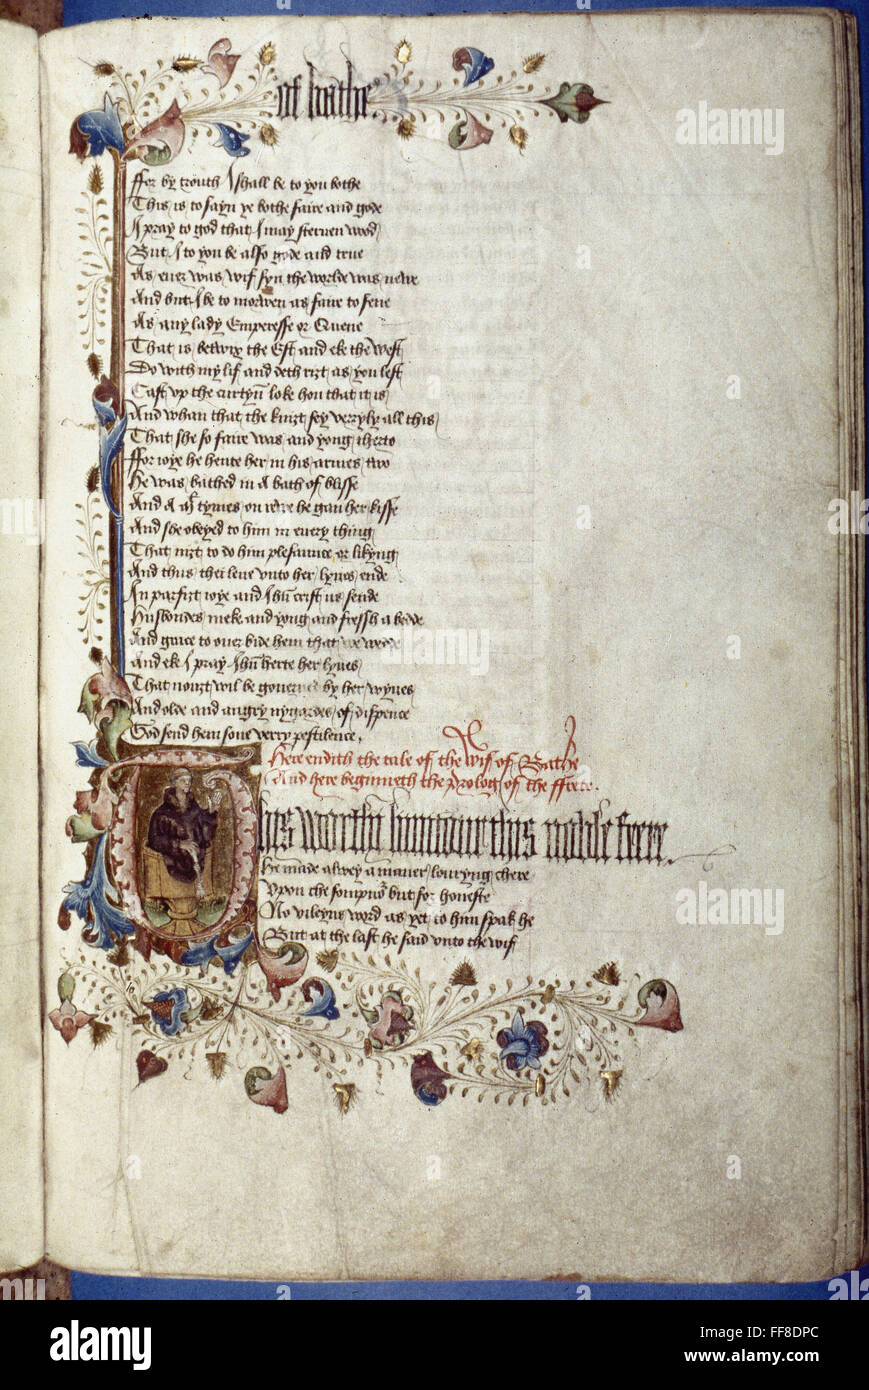 of bathe
ffor by trouth I shall be to you bothe
This is to sayn ye bothe faire and gode
I pray to god that I may steruen wood
But I to you be also gode and true
As euer was wif syn the worlde was newe
And but I be to morwen as faire to sene
As any lady Emperesse or Quene
That is betwix the Est and eke the west
Do with my lif and deth rizt as you lest
Cast vp the curtyn loke hou that it is
And whan that the kinzt sey verryly all this
That she so faire was and yong therto
ffor ioye he hente her in his armes two
He was bathed in a bath of blisse
And a tymes on rewe he gan her kisse
And she obeyed to him in euery thing
That mizt to do him plesaunce or likyng
And thus thei leue vnto her lyues ende
In parfizt ioye and Ihu crist us sende
Husbondes meke and yong and fressh a bedde
And grace to ouer bide hem that we wedde
And eke I pray Ihu herte her lyues
That nouzt wil be gouerned by her wyues
And olde and angry nygardes of dispence
God send hem sone verry pestilence
Here endith the tale of the Wif of Bathe
And here begynneth the prolog of the ffrere
This worthy lymitour this noble frere
He made alwey a maner louryng chere
Vpon the sompnor but for honeste
No vileyns word as yet to him spak he
But at the last he said vnto the wif
alamy
a
alamy
Image ID: FF8DPC
www.alamy.com